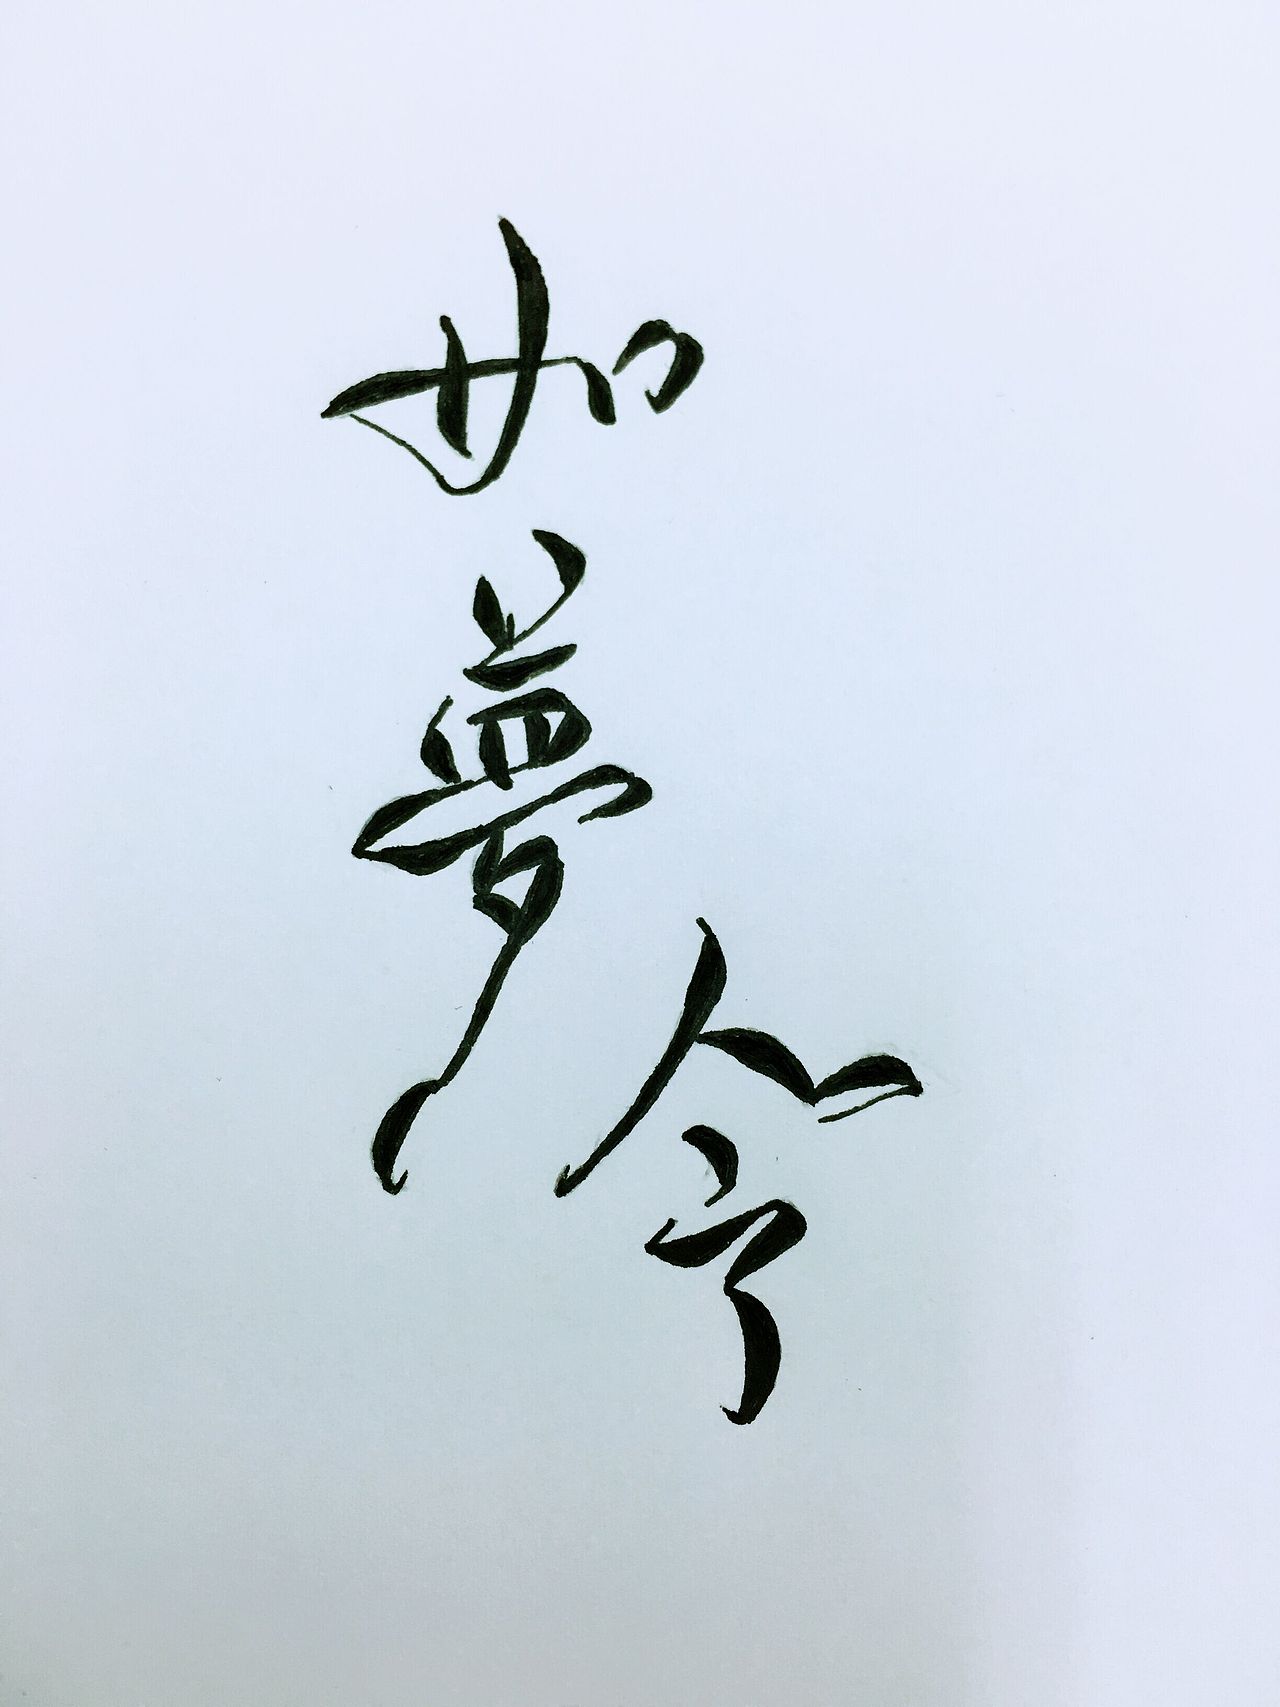 如夢令